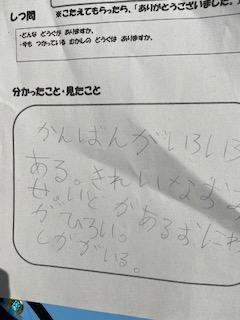 しつ問
※こたえてもらったら、「ありがとうございました。」
・どんな どうぐが ありますか。
・今も つかっている むかしの どうぐは ありますか。
分かったこと・見たこと
かんばんがいろいろ
ある。きれいなまる
せいとがあるおにわ
がひろい。
しかがいる。